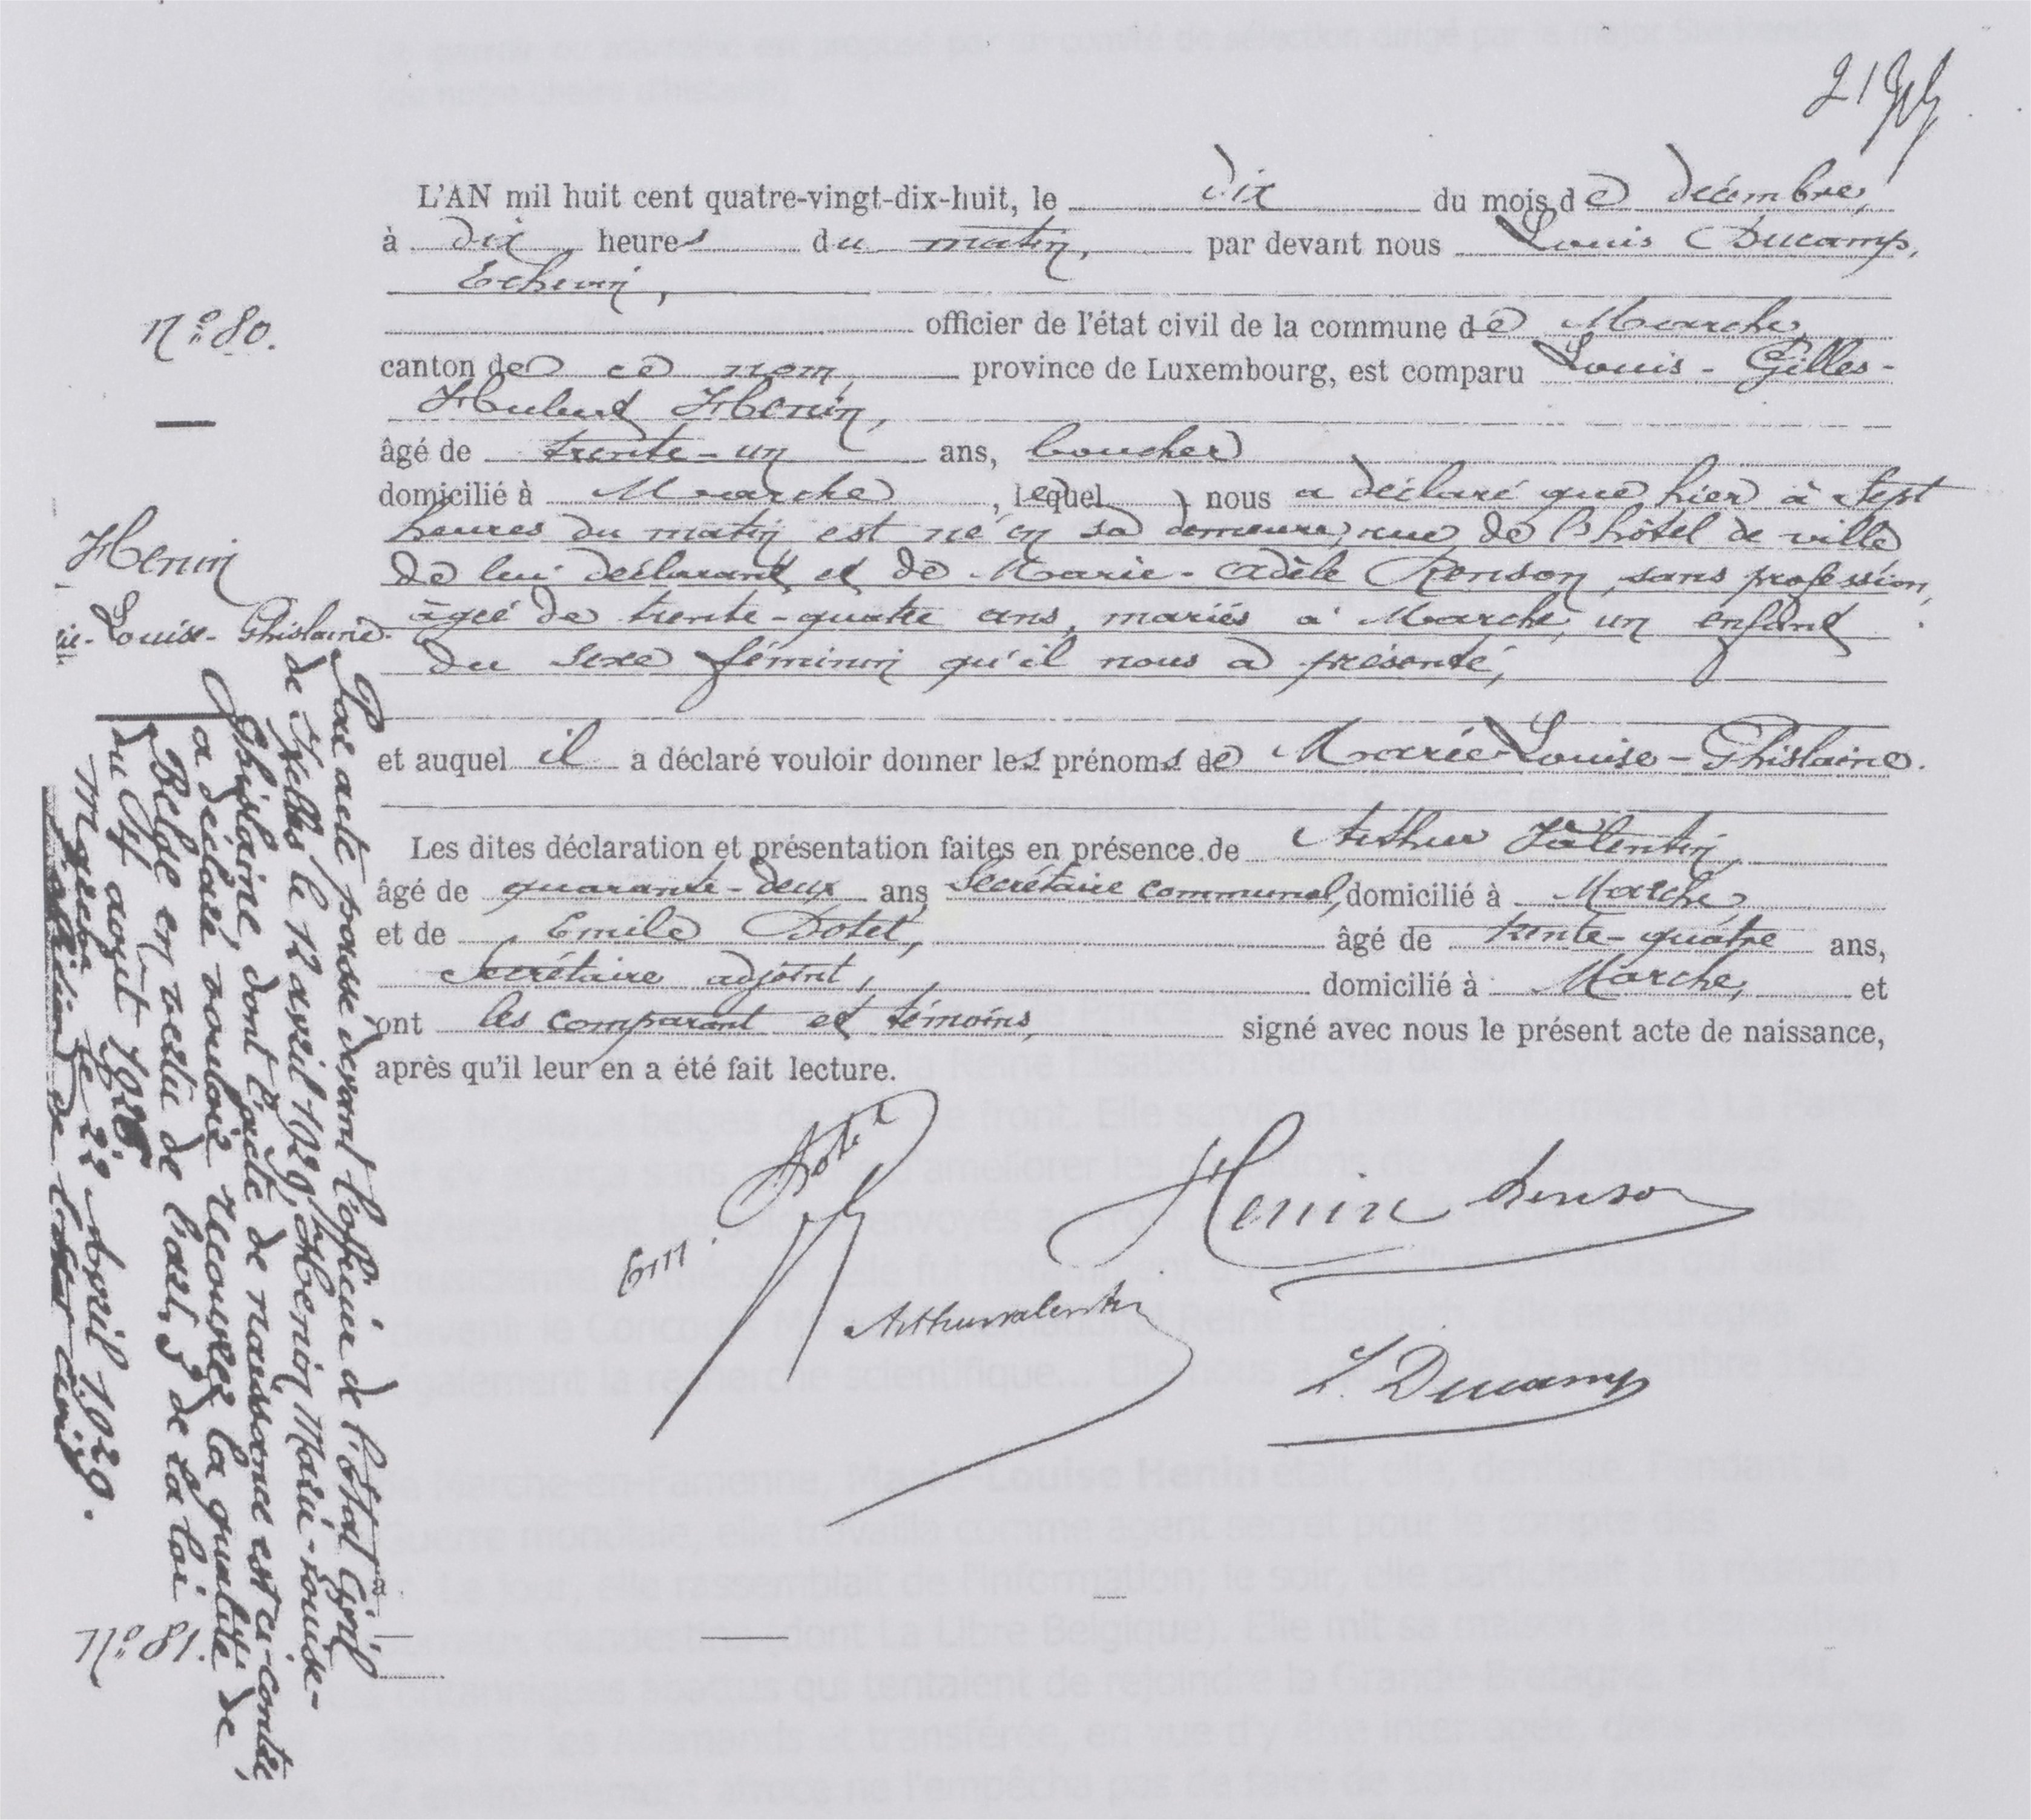 L'AN mil huit cent quatre-vingt-dix-huit, le dix du mois de décembre,
à dix heures du matin, par devant nous Louis Ducamp,
Echevin,
officier de l'état civil de la commune de Marche,
N° 80.
canton de ce nom, province de Luxembourg, est comparu Louis-Gilles-
Hubert Henin,
âgé de trente-un ans, boucher
domicilié à Marche, lequel nous a déclaré que hier à sept
heures du matin est né en sa demeure, rue de l'hôtel de ville
de lui déclarant et de Marie-Adèle Renson, sans profession,
âgée de trente-quatre ans, mariés à Marche, un enfant
du sexe féminin qu'il nous a présenté,
Henin
ie-Louise-Ghislaine.
et auquel il a déclaré vouloir donner les prénoms de Marie-Louise-Ghislaine.
Les dites déclaration et présentation faites en présence de Arthur Valentin,
âgé de quarante-deux ans Secrétaire communal, domicilié à Marche,
et de Emile Dotet, âgé de trente-quatre ans,
Secrétaire adjoint, domicilié à Marche, et
ont les comparant et témoins, signé avec nous le présent acte de naissance,
après qu'il leur en a été fait lecture.
Henin Renson
Arthur Valentin
L. Ducamp
Par acte passé devant l'officier de l'état civil
de Ixelles le 12 avril 1929, Henin Marie-Louise-
Ghislaine, dont l'acte de naissance est ci-contre,
a déclaré vouloir recouvrer la qualité de
Belge en vertu de l'art. 5 de la loi
du 4 août 1926
Marche le 22 Avril 1929.
de l'état civil,
N° 81.